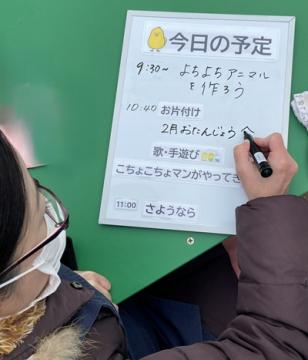 今日の予定
9:30~ よちよちアニマル
を作ろう
10:40 お片付け
2月おたんじょう
歌・手遊び
こちょこちょマンがやってき
11:00 さようなら